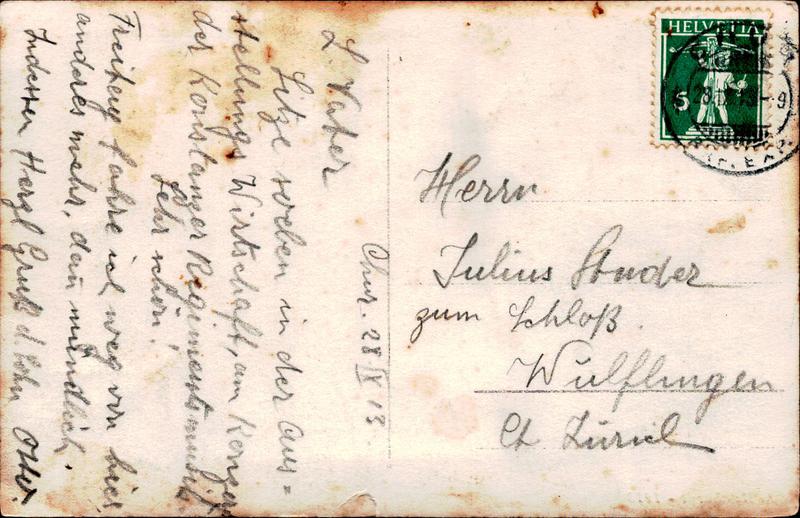 Chur. 28 IX 13
L. Vater
Sitze soeben in der Aus=
stellungs Wirtschaft, am Konzert
der Konstanzer Regimentsmusik.
Sehr schön!
Freitag fahre ich weg von hier
anderes mehr, dan mündlich.
Indessen Herzl Gruß d. Sohn Otto.
HELVETIA
5
28. IX. 13 - 9
Herrn
Julius Studer
zum Schloß.
Wülflingen
Ct Zürich